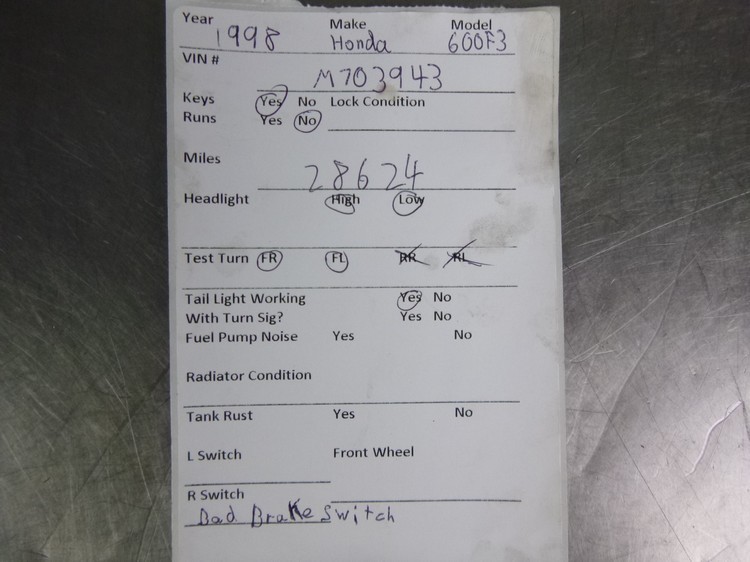 Year 1998 Make Honda Model 600F3
VIN # M703943
Keys Yes No Lock Condition
Runs Yes No
Miles 28624
Headlight High Low
Test Turn FR FL RR RL
Tail Light Working Yes No
With Turn Sig? Yes No
Fuel Pump Noise Yes No
Radiator Condition
Tank Rust Yes No
L Switch Front Wheel
R Switch
Bad Brake Switch